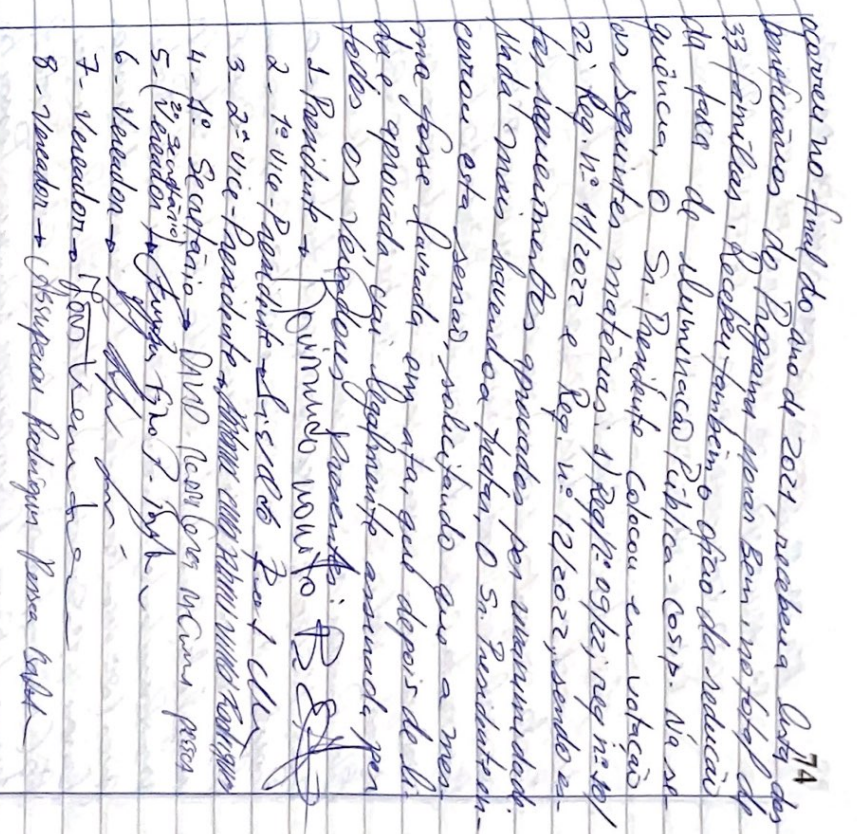 74
ocorreu no final do ano de 2021 receberá lista dos
beneficiários do Programa Morar Bem, no total de
33 famílias. Recebeu também o ofício da redução
da taxa de iluminação Pública - Cosip. Na se-
quência, O Sr. Presidente colocou em votação
as seguintes matérias: 1) Req. nº 09/22, req nº 10/
22, Req. nº 11/2022 e Req. nº 12/2022, sendo es-
tes requerimentos aprovados por unanimidade.
Nada mais havendo a tratar, O Sr. Presidente en-
cerrou esta sessão, solicitando que a mes-
ma fosse lavrada em ata, que depois de li-
da e aprovada, vai legalmente assinada por
todos os Vereadores Presentes:
1. Presidente →
2 - 1º Vice-Presidente →
3 - 2º Vice-Presidente →
4 - 1º Secretário →
5 - (2º secretário) Vereador →
6 - Vereador →
7 - Vereador →
8 - Vereador → Rodrigues